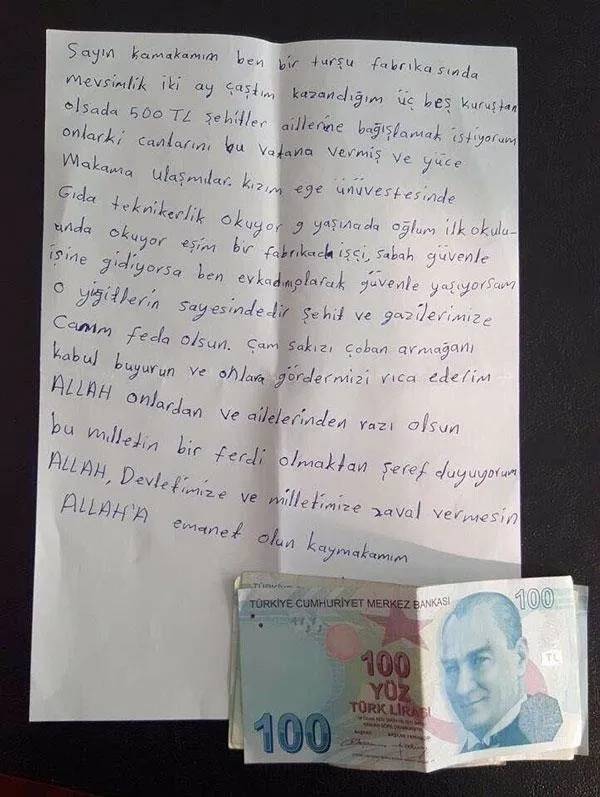 Sayın kamakamım ben bir turşu fabrikasında
mevsimlik iki ay çaştım kazandığım üç beş kuruştan
olsada 500 TL şehitler aillerine bağışlamak istiyorum
onlarki canlarını bu vatana vermiş ve yüce
Makama ulaşmılar. kızım ege ünüvestesinde
Gıda teknikerlik okuyor 9 yaşınada oğlum ilk okulu-
unda okuyor eşim bir fabrikada işçi, sabah güvenle
işine gidiyorsa ben evkadınıolarak güvenle yaşıyorsam
O yiğitlerin sayesindedir şehit ve gazilerimize
Canım feda olsun. Çam sakızı çoban armağanı
kabul buyurun ve onlara göndermizi rica ederim
ALLAH onlardan ve ailelerinden razı olsun
bu milletin bir ferdi olmaktan şeref duyuyorum
ALLAH, Devletimize ve milletimize zaval vermesin
ALLAH'A emanet olun kaymakamım
TÜRKİYE CUMHURİYET MERKEZ BANKASI
100
TL
100
YÜZ
TÜRK LİRASI
100